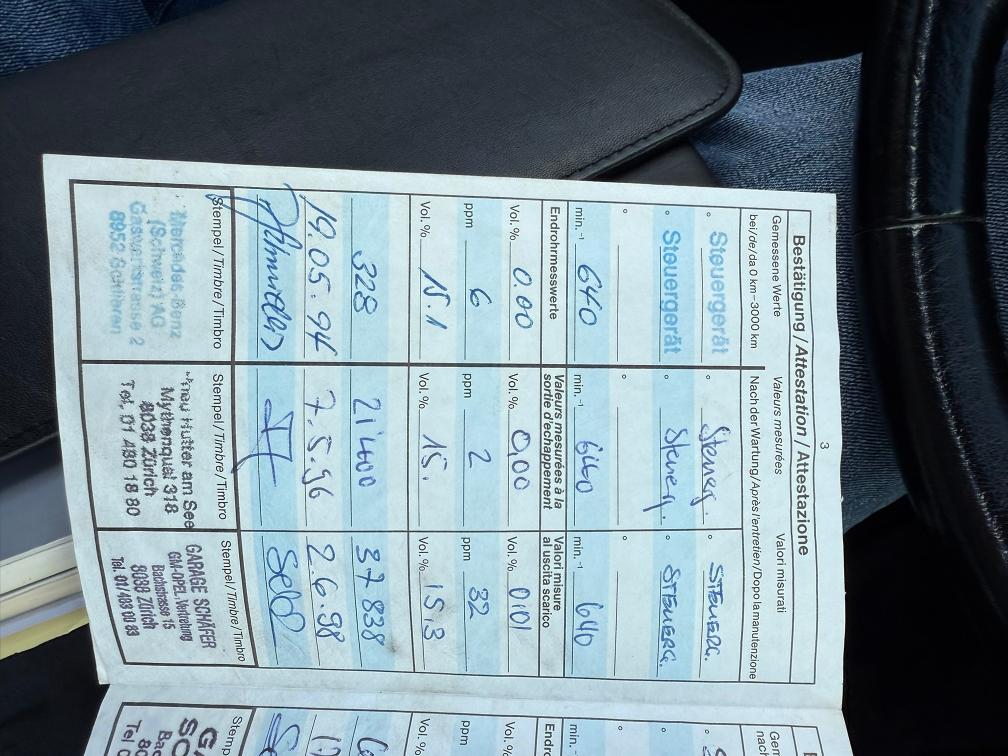 3
Bestätigung / Attestation / Attestazione
Gemessene Werte Valeurs mesurées Valori misurati
bei/de/da 0 km–3000 km Nach der Wartung/Après l'entretien/Dopo la manutenzione
° Steuergerät ° Steuerg. ° STEUERG.
° Steuergerät ° Steuerg. ° STEUERG.
° ° °
min.⁻¹ 640 min.⁻¹ 640 min.⁻¹ 640
Endrohrmesswerte Valeurs mesurées à la sortie d'echappement Valori misure al uscita scarico
Vol.% 0.00 Vol.% 0,00 Vol.% 0,01
ppm 6 ppm 2 ppm 32
Vol.% 15.1 Vol.% 15. Vol.% 15,3
328 21400 37838
19.05.94 7.5.96 2.6.98
Stempel/Timbre/Timbro Stempel/Timbre/Timbro Stempel/Timbre/Timbro
Mercedes Benz
(Schweiz) AG
Gaswerkstrasse 2
8952 Schlieren
Hutter am See
Mythenquai 318
8038 Zürich
Tel. 01 480 18 80
GARAGE SCHÄFER
GM-OPEL Vertretung
Bachstrasse 15
8038 Zürich
Tel. 01/483 00 83
min.⁻¹
Vol.%
ppm
Vol.%